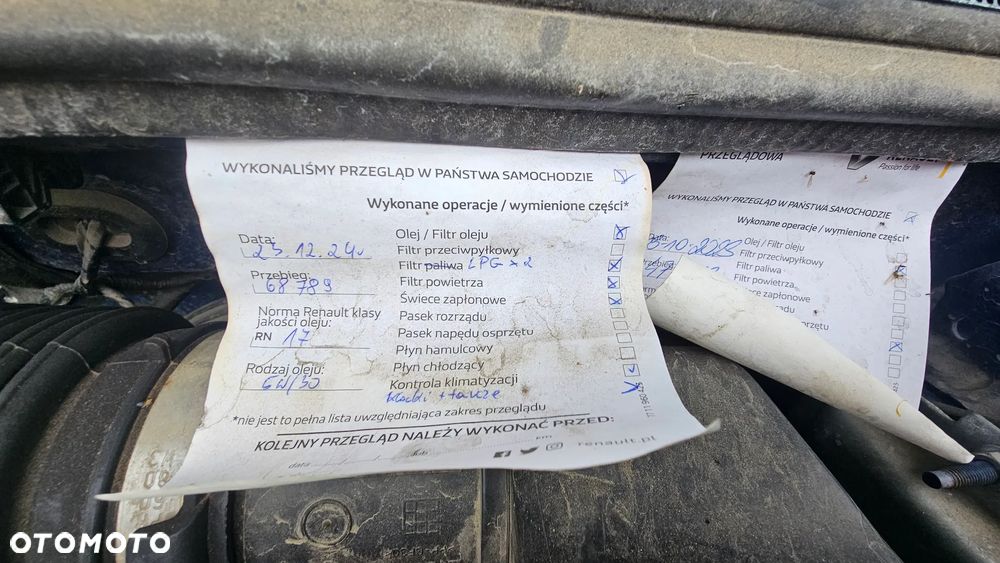 WYKONALIŚMY PRZEGLĄD W PAŃSTWA SAMOCHODZIE
Wykonane operacje / wymienione części*
Data:
23.12.24
Przebieg:
68 789
Norma Renault klasy
jakości oleju:
RN 17
Rodzaj oleju:
5W/30
Olej / Filtr oleju
Filtr przeciwpyłkowy
Filtr paliwa LPG x 2
Filtr powietrza
Świece zapłonowe
Pasek rozrządu
Pasek napędu osprzętu
Płyn hamulcowy
Płyn chłodzący
Kontrola klimatyzacji
klocki + tarcze
*nie jest to pełna lista uwzględniająca zakres przeglądu
KOLEJNY PRZEGLĄD NALEŻY WYKONAĆ PRZED:
data
km
renault.pl
7711 960 425
PRZEGLĄDOWA
RENAULT
Passion for life
WYKONALIŚMY PRZEGLĄD W PAŃSTWA SAMOCHODZIE
Wykonane operacje / wymienione części*
Data:
Olej / Filtr oleju
Filtr przeciwpyłkowy
Filtr paliwa
Filtr powietrza
zapłonowe
rozrządu
425
OTOMOTO